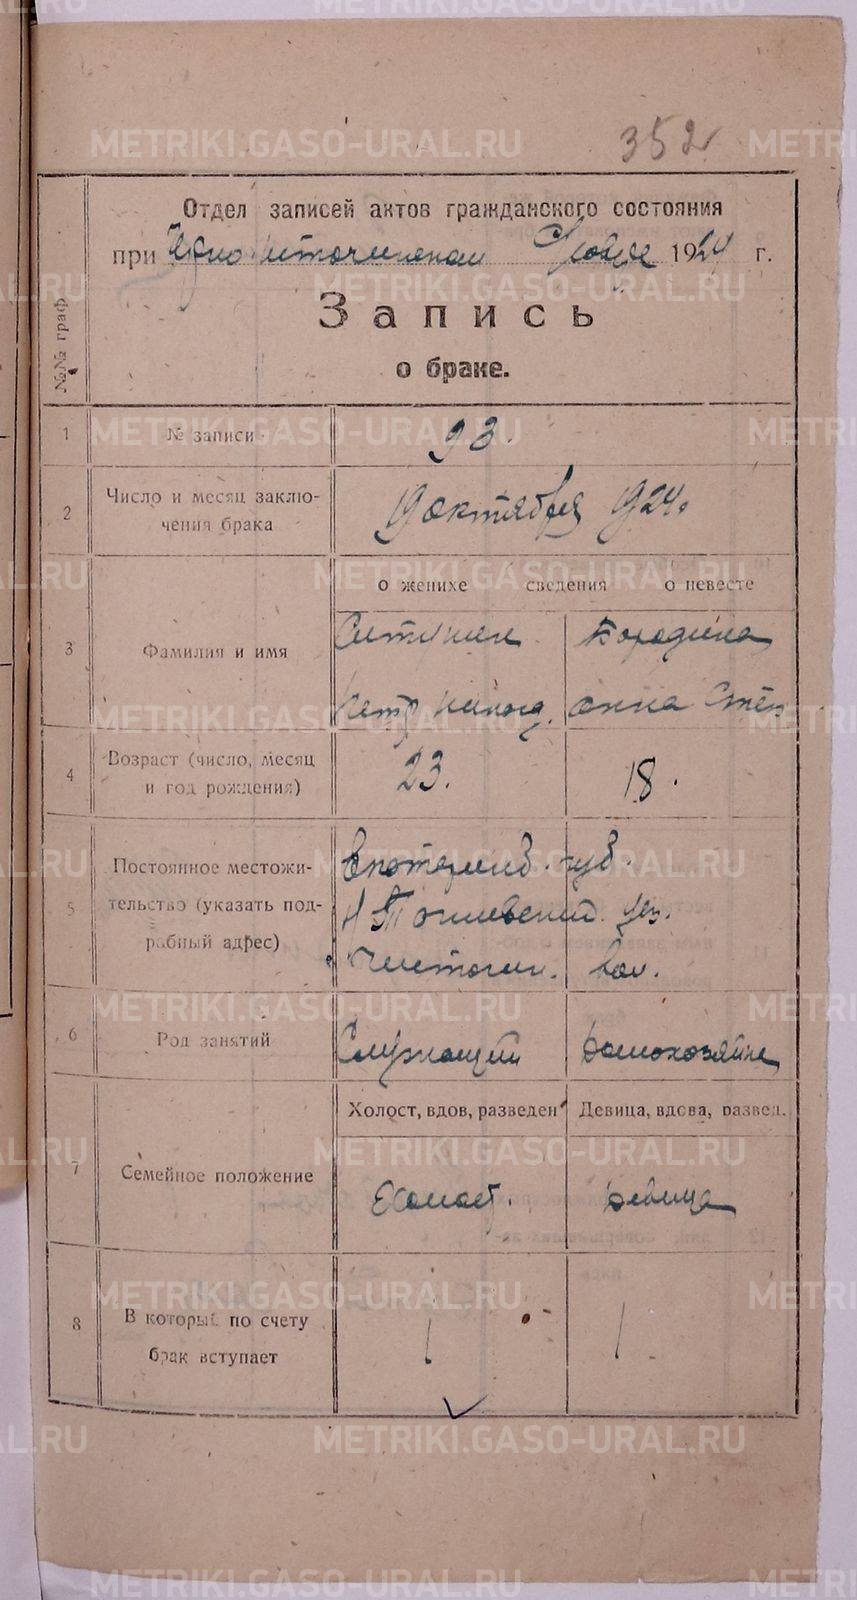 352
Отдел записей актов гражданского состояния
при 1924 г.
Запись
о браке.
№№ граф
1 № записи 93.
2 Число и месяц заключения брака 19 октября 1924.
о женихе сведения о невесте
3 Фамилия и имя Бородина
Петр Анна Степ
4 Возраст (число, месяц и год рождения) 23. 18.
Екатеринб. губ.
5 Постоянное местожительство (указать подробный адрес) Н Тагильский. уез.
вол.
6 Род занятий Служащий Домохозяйка
Холост, вдов, разведен Девица, вдова, развед.
7 Семейное положение Холост. Девица
8 В который по счету брак вступает 1 1
METRIKI.GASO-URAL.RU